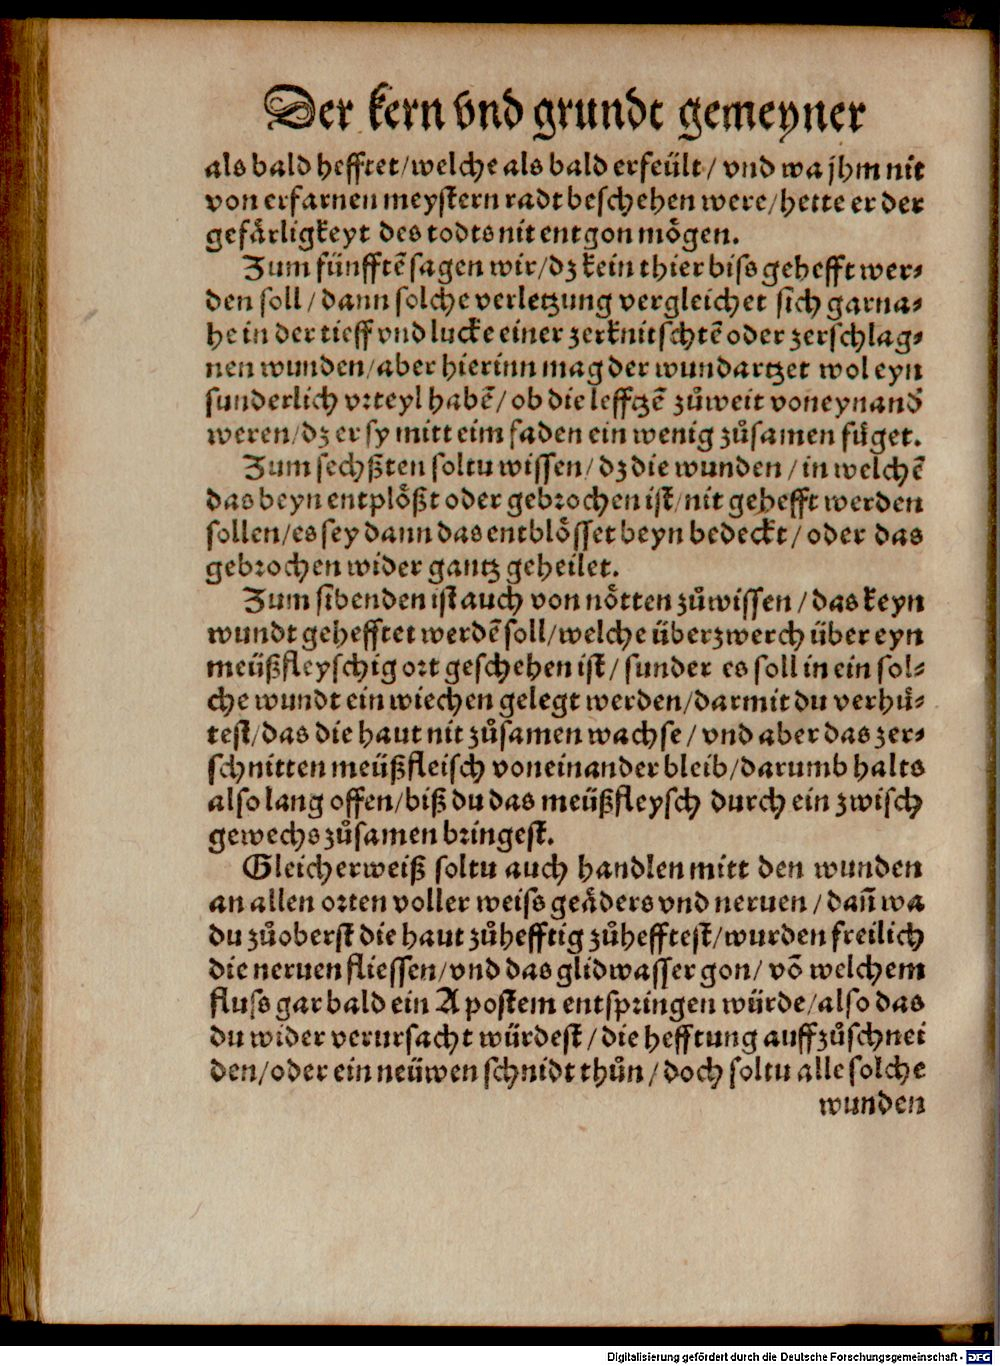 Der kern vnd grundt gemeyner
als bald hefftet/welche als bald erfeült/ vnd wa jhm nit
von erfarnen meystern radt beschehen were/hette er der
gefårligkeyt des todts nit entgon mögen.
Zum fünfftē sagen wir/dz kein thier biss gehefft wer⸗
den soll/ dann solche verletzung vergleichet sich garna⸗
he in der tieff vnd lucke einer zerknitschtē oder zerschlag⸗
nen wunden/aber hierinn mag der wundartzet wol eyn
sunderlich vrteyl habē/ ob die leffczē zůweit voneynand
weren/dz er sy mitt eim faden ein wenig zůsamen füget.
Zum sechßten soltu wissen/dz die wunden/in welchē
das beyn entplößt oder gebrochen ist/nit gehefft werden
sollen/es sey dann das entblösset beyn bedeckt/oder das
gebrochen wider gantz geheilet.
Zum sibenden ist auch von nötten zůwissen/das keyn
wundt gehefftet werdē soll/welche überzwerch über eyn
meüßfleyschig ort geschehen ist/sunder es soll in ein sol⸗
che wundt ein wiechen gelegt werden/darmit du verhü⸗
test/das die haut nit zůsamen wachse/ vnd aber das zer⸗
schnitten meüßfleisch voneinander bleib/darumb halts
also lang offen/biß du das meüßfleysch durch ein zwisch
gewechs zůsamen bringest.
Gleicherweiß soltu auch handlen mitt den wunden
an allen orten voller weiss geäders vnd neruen/dañ wa
du zůoberst die haut zůhefftig zůhefftest/wurden freilich
die neruen fliessen/vnd das glidwasser gon/ vō welchem
fluss gar bald ein Apostem entspringen würde/also das
du wider verursacht würdest/die hefftung auffzůschnei
den/oder ein neüwen schnidt thůn/doch soltu alle solche
wunden
Digitalisierung gefördert durch die Deutsche Forschungsgemeinschaft - DFG